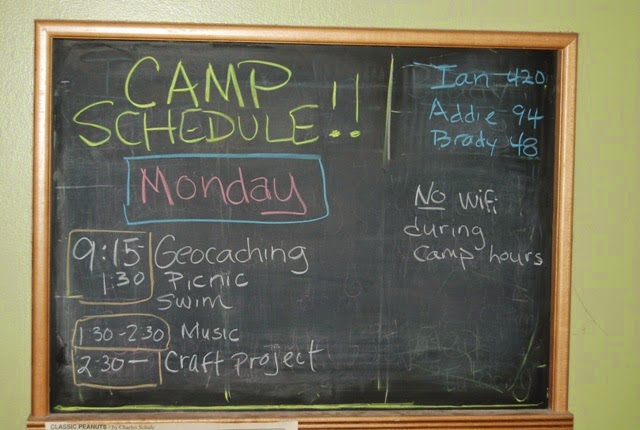 CAMP
SCHEDULE!!
Monday
9:15 Geocaching
1:30 Picnic
Swim
1:30-2:30 Music
2:30— Craft project
Ian 420
Addie 94
Brady 48
No wifi
during
Camp hours
CLASSIC PEANUTS / by Charles Schulz